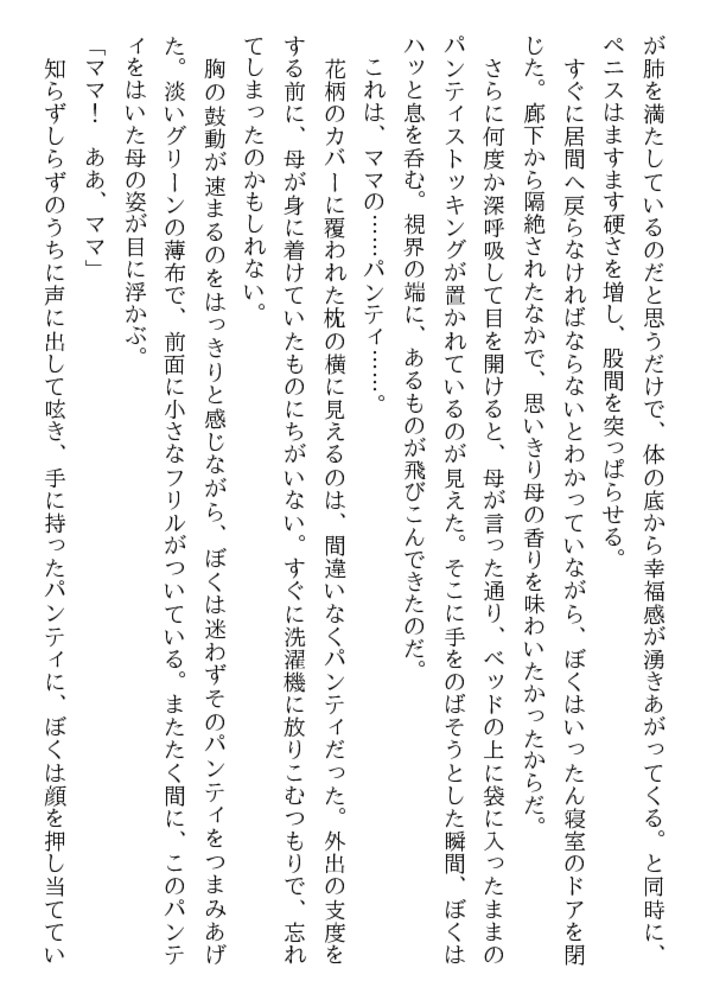 が肺を満たしているのだと思うだけで、体の底から幸福感が湧きあがってくる。と同時に、
ペニスはますます硬さを増し、股間を突っぱらせる。
すぐに居間へ戻らなければならないとわかっていながら、ぼくはいったん寝室のドアを閉
じた。廊下から隔絶されたなかで、思いきり母の香りを味わいたかったからだ。
さらに何度か深呼吸して目を開けると、母が言った通り、ベッドの上に袋に入ったままの
パンティストッキングが置かれているのが見えた。そこに手をのばそうとした瞬間、ぼくは
ハッと息を呑む。視界の端に、あるものが飛びこんできたのだ。
これは、ママの……パンティ……。
花柄のカバーに覆われた枕の横に見えるのは、間違いなくパンティだった。外出の支度を
する前に、母が身に着けていたものにちがいない。すぐに洗濯機に放りこむつもりで、忘れ
てしまったのかもしれない。
胸の鼓動が速まるのをはっきりと感じながら、ぼくは迷わずそのパンティをつまみあげ
た。淡いグリーンの薄布で、前面に小さなフリルがついている。またたく間に、このパンテ
ィをはいた母の姿が目に浮かぶ。
「ママ！　ああ、ママ」
知らずしらずのうちに声に出して呟き、手に持ったパンティに、ぼくは顔を押し当ててい